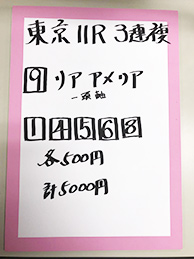 東京11R 3連複
9 リアアメリア
一頭軸
1 4 5 6 8
各500円
計5000円